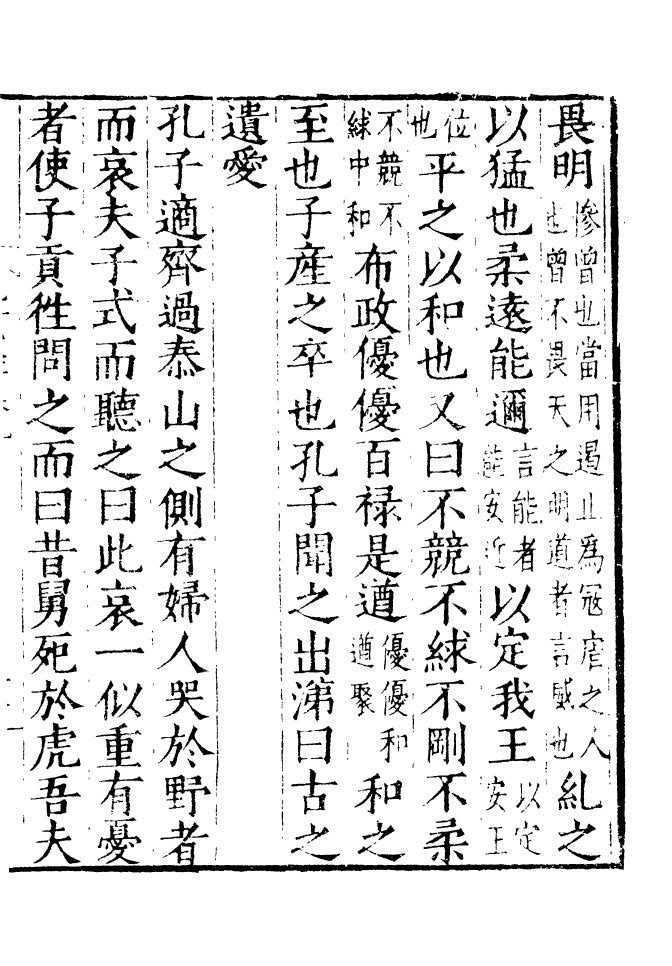 畏明慘曾也當用遏止爲寇虐之人也曾不畏天之明道者言威也糺之
以猛也柔遠能邇言能者能安近以定我王以定安王
位也平之以和也又曰不競不絿不剛不柔
不競不絿中和布政優優百禄是遒優優和遒聚和之
至也子產之卒也孔子聞之出涕曰古之
遺愛
孔子適齊過泰山之側有婦人哭於野者
而哀夫子式而聽之曰此哀一似重有憂
者使子貢徃問之而曰昔舅死於虎吾夫